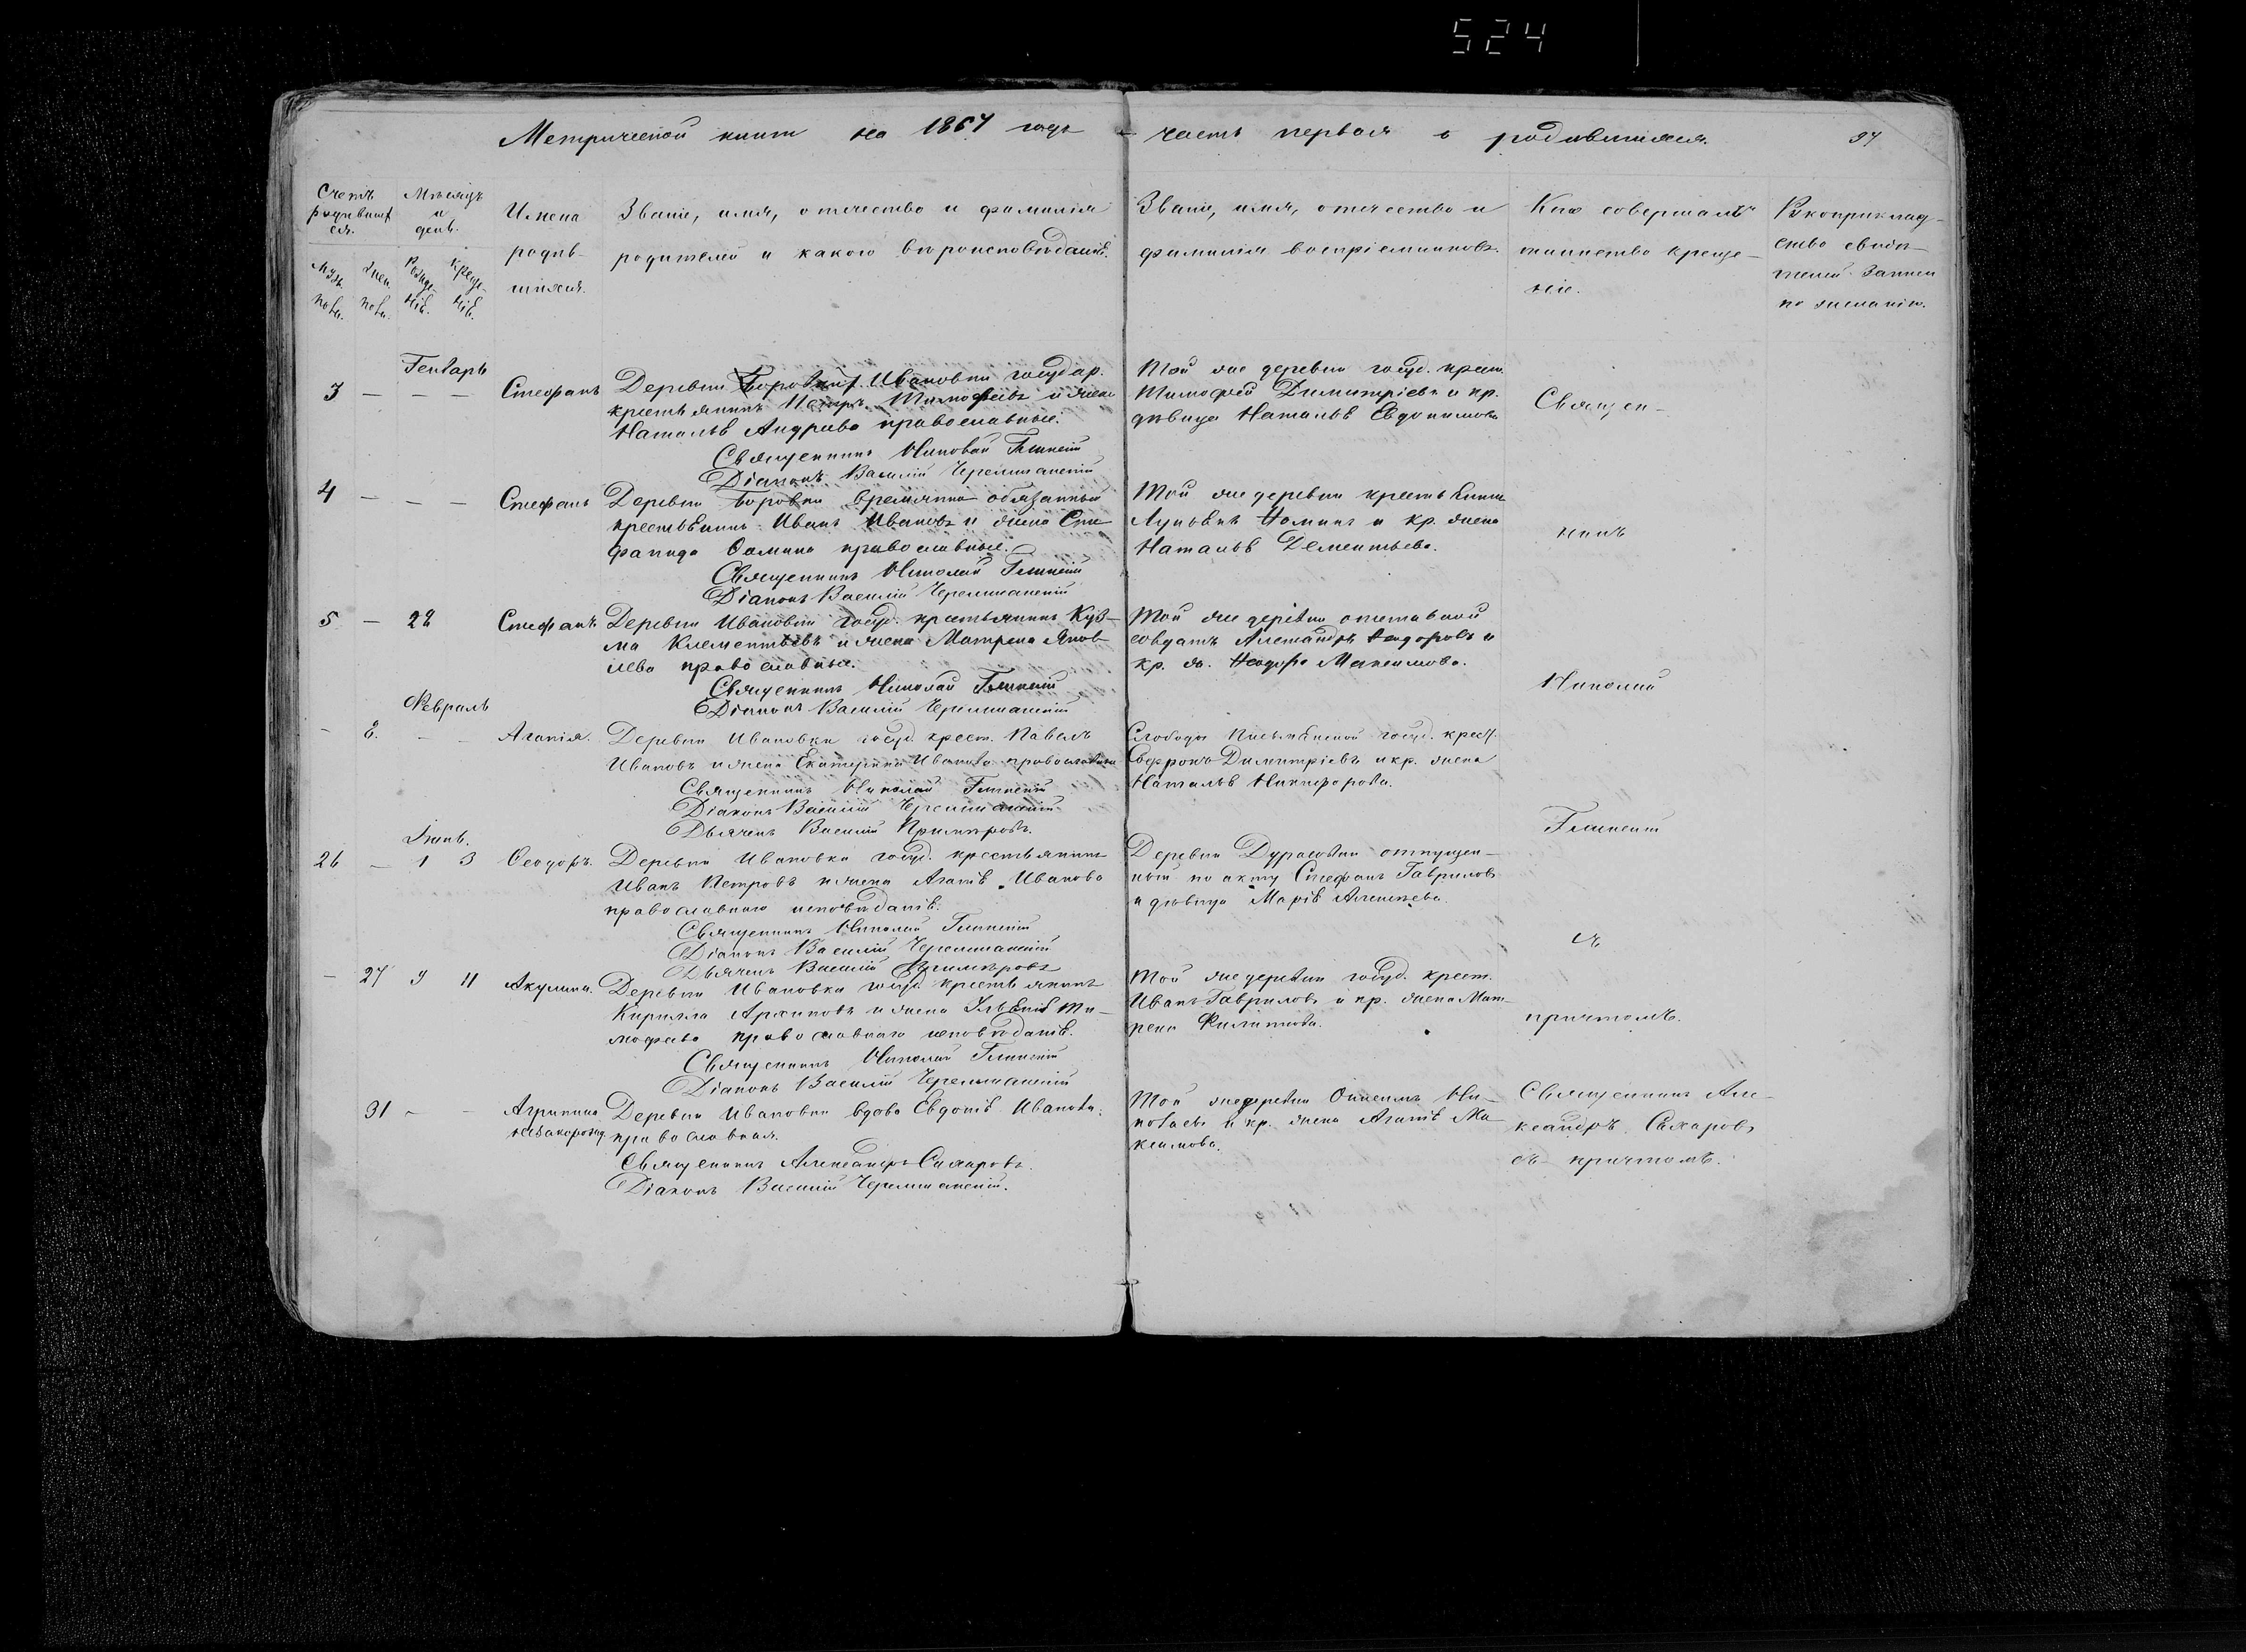 524
Метрической книги на 1864 годъ часть первая о родившихся. 94
Счетъ родившихся.
Мѣсяцъ и день.
Имена родившихся.
Званіе, имя, отчество и фамилія
родителей и какого вѣроисповѣданія.
Званіе, имя, отчество и
фамилія воспріемниковъ.
Кто совершалъ
таинство креще-
нія.
Рукоприклад-
ство свидѣ-
телей записи
по желанію.
Генварь
3 — — — Стефанъ
Деревни Ивановки государ.
крестьянинъ Петръ Тимофеевъ и жена
Наталья Андреева православные.
Священникъ Николай
Діаконъ Василій Черемшанскій
Той же деревни госуд. крест.
Тимофей Димитріевъ и кр.
дѣвица Наталья Евдокимова
Священ-
4 — — — Стефанъ
Деревни Боровки временно обязанный
крестьянинъ Иванъ Ивановъ и жена Сте-
фанида Ѳомина православные.
Священникъ Николай
Діаконъ Василій Черемшанскій
Той же деревни крестьянинъ
и кр. жена
Наталья Дементьева.
никъ
5 — 28 Стефанъ
Деревни Ивановки госуд. крестьянинъ Кузь-
ма Клементьевъ и жена Матрена Яков-
лева православные.
Священникъ Николай
Діаконъ Василій Черемшанскій
Той же деревни отставной
солдатъ Александръ Ѳеодоровъ и
кр. ж. Ѳеодора Максимова.
Николай
Февраль
— 2. — — Агапія.
Деревни Ивановки госуд. крест. Павелъ
Ивановъ и жена Екатерина Иванова православные
Священникъ Николай
Діаконъ Василій Черемшанскій
Дьячекъ Василій
Слободы госуд. крест.
Димитріевъ и кр. жена
Наталья Никифорова.
Іюнь.
26 — 1 3 Ѳеодоръ.
Деревни Ивановки госуд. крестьянинъ
Иванъ Петровъ и жена Агапія Иванова
православнаго исповѣданія.
Священникъ Николай
Діаконъ Василій Черемшанскій
Дьячекъ Василій
Деревни Дурасовки отпущен-
ный по акту Стефанъ Гавриловъ
и дѣвица Марія Алексѣева.
съ
— 27 9 11 Акулина.
Деревни Ивановки госуд. крестьянинъ
Кирилла Архиповъ и жена Ти-
мофеева православнаго исповѣданія.
Священникъ Николай
Діаконъ Василій Черемшанскій
Той же деревни госуд. крест.
Иванъ Гавриловъ и кр. жена Мат-
рена Филиппова.
причтомъ.
31 — — Агрипина
незаконорожд.
Деревни Ивановки вдова Евдокія Иванова,
православная.
Священникъ Александръ Сахаровъ.
Діаконъ Василій Черемшанскій.
Той же деревни Онисимъ Ни-
колаевъ и кр. жена Агапія Ма-
ксимова.
Священникъ Але-
ксандръ Сахаровъ
съ причтомъ.